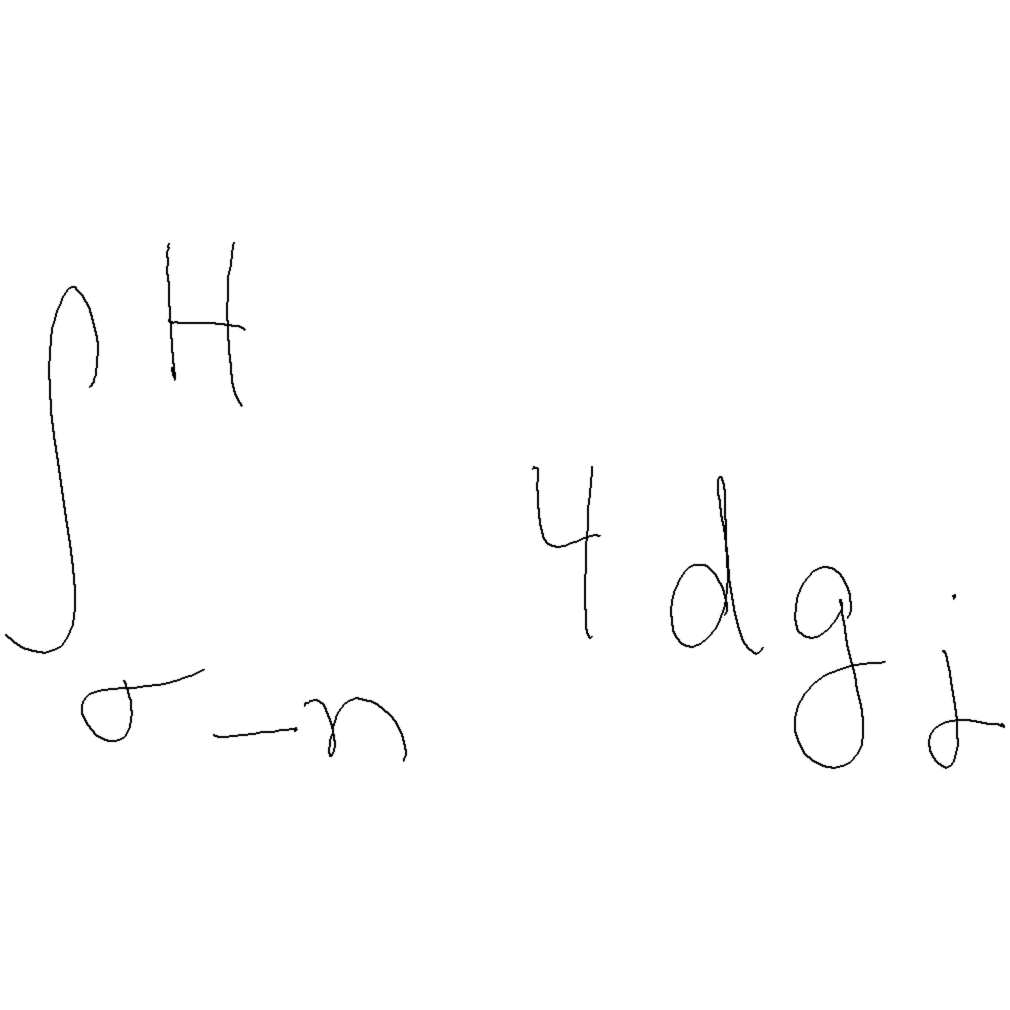 \int_{\sigma-n}^{H} 4 d g_{j}